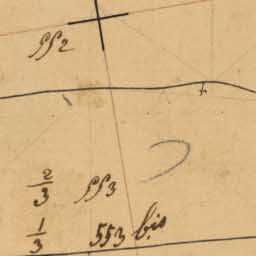 552
2/3 553
1/3 553 bis